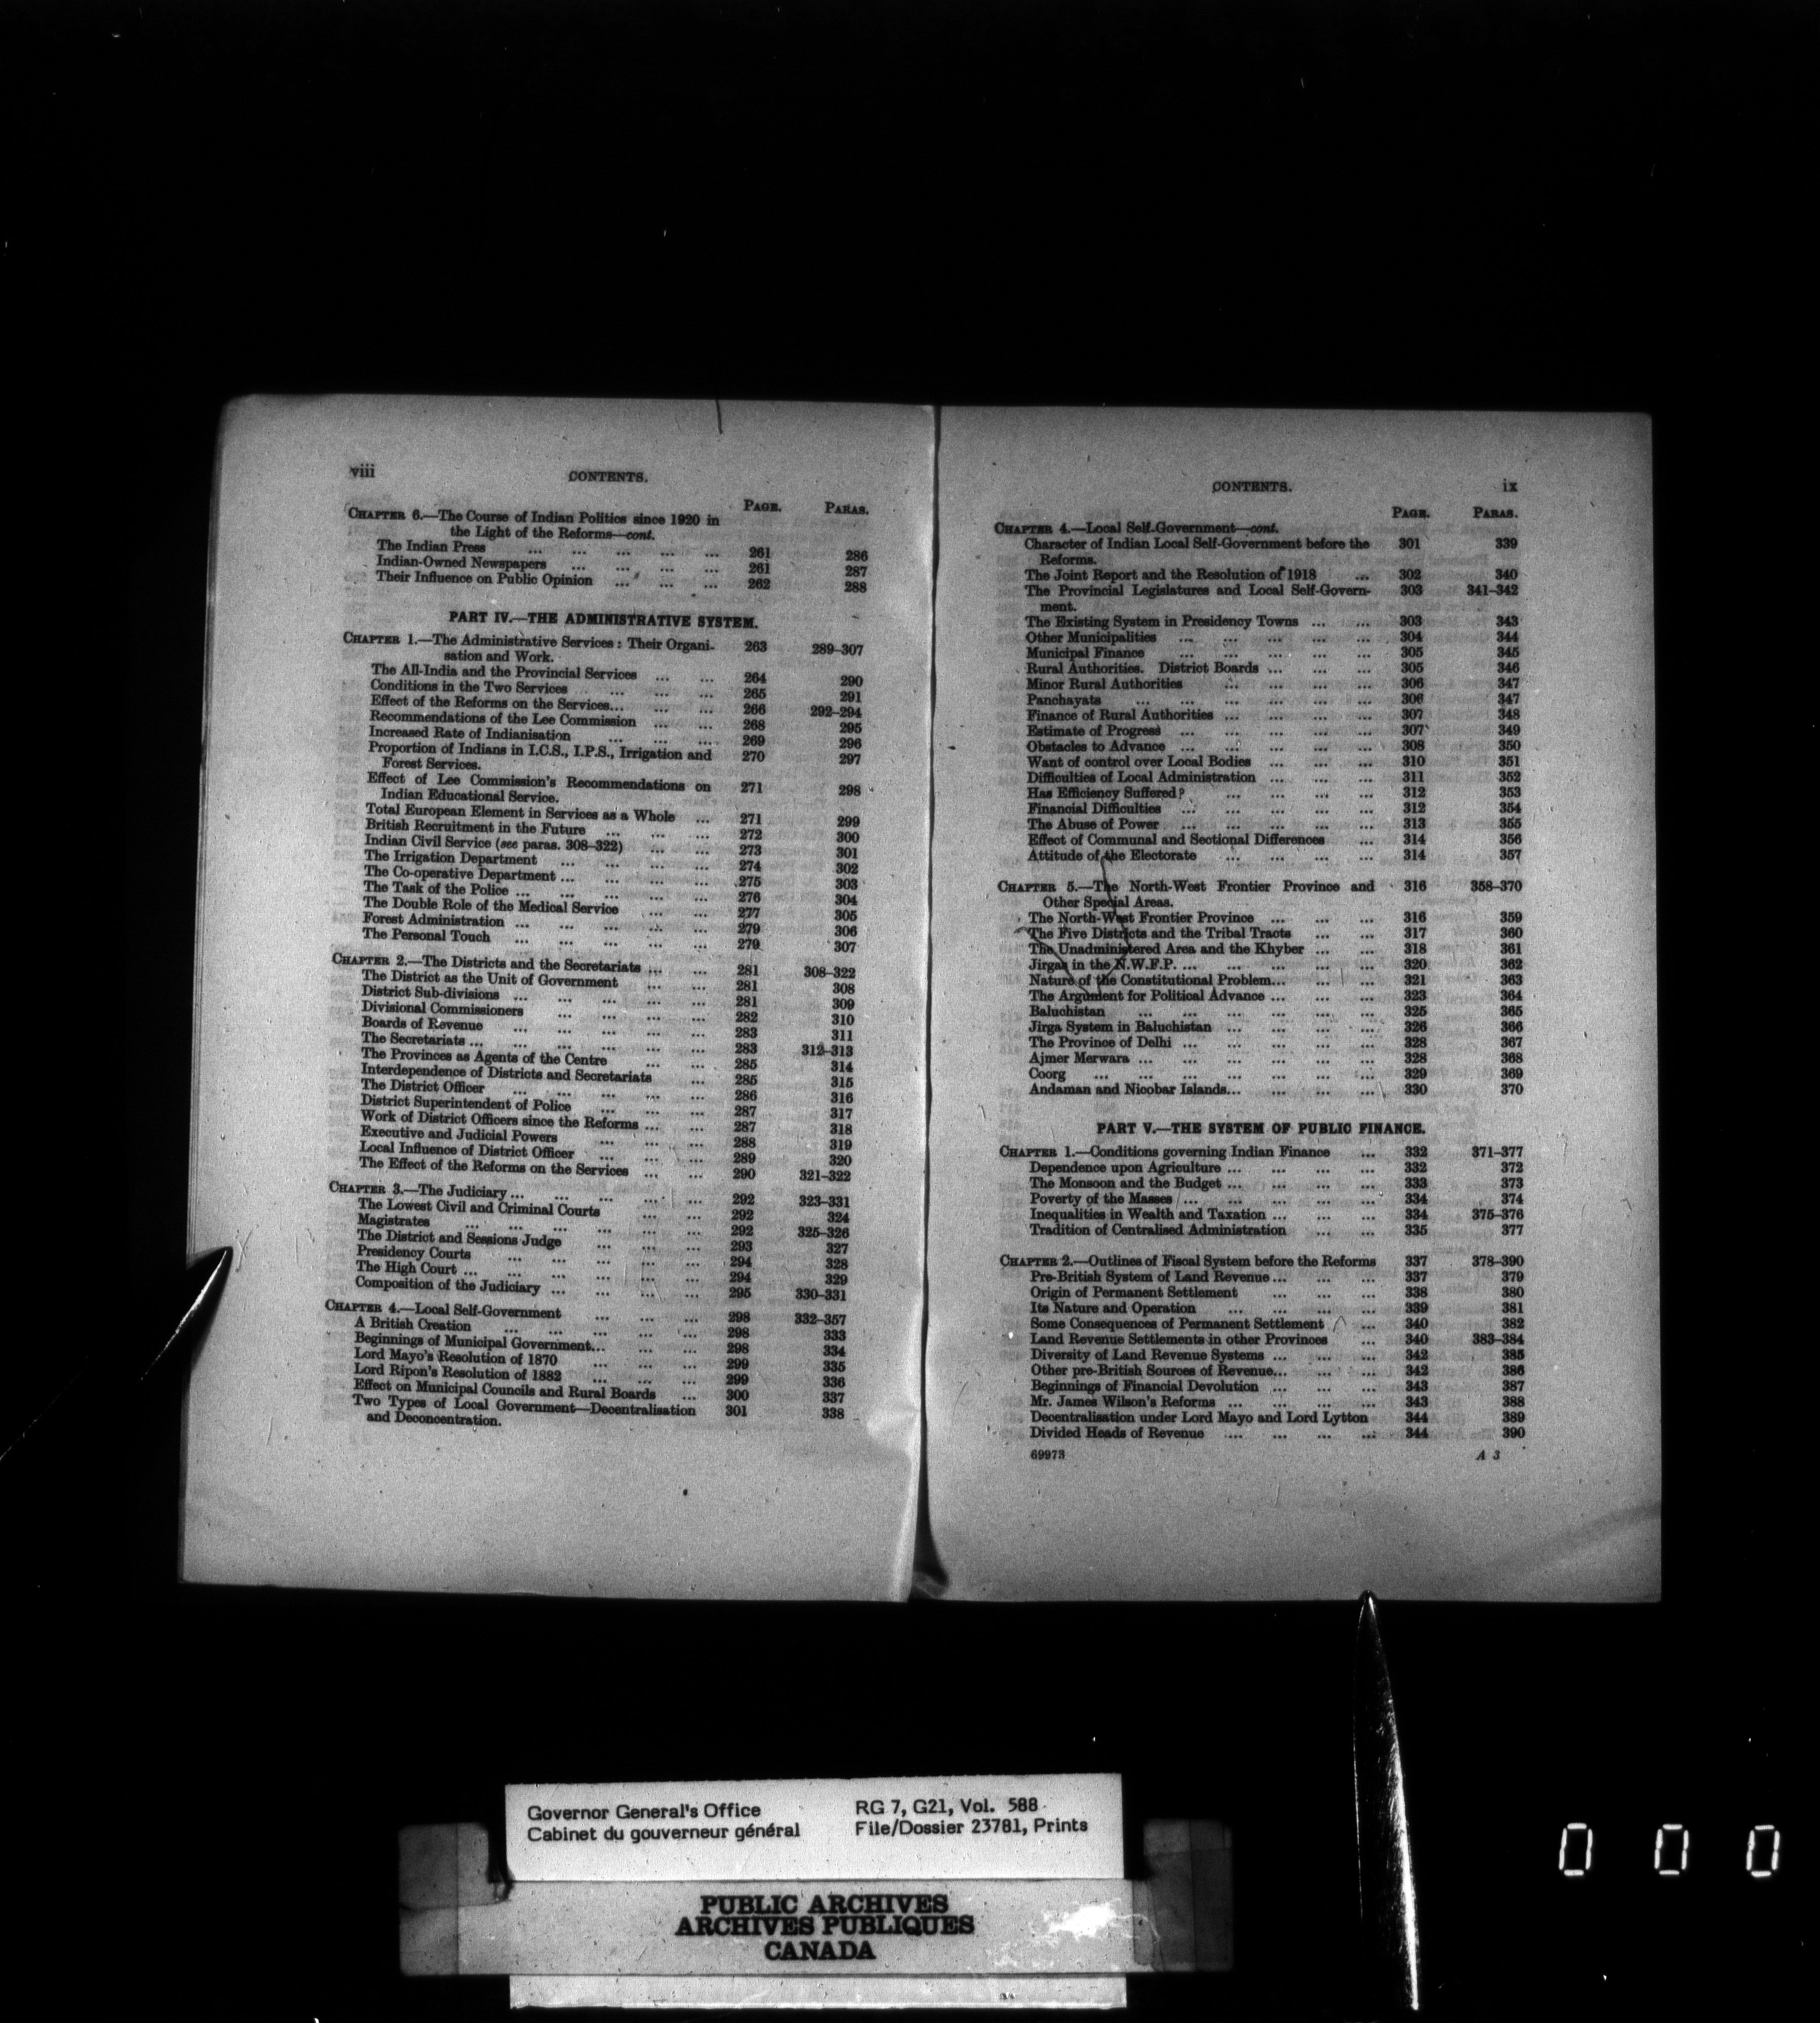 viii
CONTENTS.
PAGE. PARAS.
CHAPTER 6.—The Course of Indian Politics since 1920 in
the Light of the Reforms—cont.
The Indian Press ... ... ... ... ... 261 286
Indian-Owned Newspapers ... ... ... ... 261 287
Their Influence on Public Opinion ... ... ... 262 288
PART IV.—THE ADMINISTRATIVE SYSTEM.
CHAPTER 1.—The Administrative Services: Their Organi- 263 289-307
sation and Work.
The All-India and the Provincial Services ... ... 264 290
Conditions in the Two Services ... ... ... 265 291
Effect of the Reforms on the Services... ... ... 266 292-294
Recommendations of the Lee Commission ... ... 268 295
Increased Rate of Indianisation ... ... ... 269 296
Proportion of Indians in I.C.S., I.P.S., Irrigation and 270 297
Forest Services.
Effect of Lee Commission's Recommendations on 271 298
Indian Educational Service.
Total European Element in Services as a Whole ... 271 299
British Recruitment in the Future ... ... ... 272 300
Indian Civil Service (see paras. 308-322) ... ... 273 301
The Irrigation Department ... ... ... ... 274 302
The Co-operative Department ... ... ... ... 275 303
The Task of the Police ... ... ... ... ... 276 304
The Double Role of the Medical Service ... ... 277 305
Forest Administration ... ... ... ... ... 279 306
The Personal Touch ... ... ... ... ... 279 307
CHAPTER 2.—The Districts and the Secretariats ... ... 281 308-322
The District as the Unit of Government ... ... 281 308
District Sub-divisions ... ... ... ... ... 281 309
Divisional Commissioners ... ... ... ... 282 310
Boards of Revenue ... ... ... ... ... 283 311
The Secretariats ... ... ... ... ... ... 283 312-313
The Provinces as Agents of the Centre ... ... 285 314
Interdependence of Districts and Secretariats ... 285 315
The District Officer ... ... ... ... ... 286 316
District Superintendent of Police ... ... ... 287 317
Work of District Officers since the Reforms ... ... 287 318
Executive and Judicial Powers ... ... ... 288 319
Local Influence of District Officer ... ... ... 289 320
The Effect of the Reforms on the Services ... ... 290 321-322
CHAPTER 3.—The Judiciary ... ... ... ... ... 292 323-331
The Lowest Civil and Criminal Courts ... ... 292 324
Magistrates ... ... ... ... ... ... 292 325-326
The District and Sessions Judge ... ... ... 293 327
Presidency Courts ... ... ... ... ... 294 328
The High Court ... ... ... ... ... ... 294 329
Composition of the Judiciary ... ... ... ... 295 330-331
CHAPTER 4.—Local Self-Government ... ... ... 298 332-357
A British Creation ... ... ... ... ... 298 333
Beginnings of Municipal Government... ... ... 298 334
Lord Mayo's Resolution of 1870 ... ... ... 299 335
Lord Ripon's Resolution of 1882 ... ... ... 299 336
Effect on Municipal Councils and Rural Boards ... 300 337
Two Types of Local Government—Decentralisation 301 338
and Deconcentration.
CONTENTS. ix
PAGE. PARAS.
CHAPTER 4.—Local Self-Government—cont.
Character of Indian Local Self-Government before the 301 339
Reforms.
The Joint Report and the Resolution of 1918 ... 302 340
The Provincial Legislatures and Local Self-Govern- 303 341-342
ment.
The Existing System in Presidency Towns ... ... 303 343
Other Municipalities ... ... ... ... ... 304 344
Municipal Finance ... ... ... ... ... 305 345
Rural Authorities. District Boards ... ... ... 305 346
Minor Rural Authorities ... ... ... ... 306 347
Panchayats ... ... ... ... ... ... 306 347
Finance of Rural Authorities ... ... ... ... 307 348
Estimate of Progress ... ... ... ... ... 307 349
Obstacles to Advance ... ... ... ... ... 308 350
Want of control over Local Bodies ... ... ... 310 351
Difficulties of Local Administration ... ... ... 311 352
Has Efficiency Suffered? ... ... ... ... 312 353
Financial Difficulties ... ... ... ... ... 312 354
The Abuse of Power ... ... ... ... ... 313 355
Effect of Communal and Sectional Differences ... 314 356
Attitude of the Electorate ... ... ... ... 314 357
CHAPTER 5.—The North-West Frontier Province and 316 358-370
Other Special Areas.
The North-West Frontier Province ... ... ... 316 359
The Five Districts and the Tribal Tracts ... ... 317 360
The Unadministered Area and the Khyber ... ... 318 361
Jirgas in the N.W.F.P. ... ... ... ... ... 320 362
Nature of the Constitutional Problem... ... ... 321 363
The Argument for Political Advance ... ... ... 323 364
Baluchistan ... ... ... ... ... ... 325 365
Jirga System in Baluchistan ... ... ... ... 326 366
The Province of Delhi ... ... ... ... ... 328 367
Ajmer Merwara ... ... ... ... ... ... 328 368
Coorg ... ... ... ... ... ... ... 329 369
Andaman and Nicobar Islands... ... ... ... 330 370
PART V.—THE SYSTEM OF PUBLIC FINANCE.
CHAPTER 1.—Conditions governing Indian Finance ... 332 371-377
Dependence upon Agriculture ... ... ... ... 332 372
The Monsoon and the Budget ... ... ... ... 333 373
Poverty of the Masses ... ... ... ... ... 334 374
Inequalities in Wealth and Taxation ... ... ... 334 375-376
Tradition of Centralised Administration ... ... 335 377
CHAPTER 2.—Outlines of Fiscal System before the Reforms 337 378-390
Pre-British System of Land Revenue ... ... ... 337 379
Origin of Permanent Settlement ... ... ... 338 380
Its Nature and Operation ... ... ... ... 339 381
Some Consequences of Permanent Settlement ... 340 382
Land Revenue Settlements in other Provinces ... 340 383-384
Diversity of Land Revenue Systems ... ... ... 342 385
Other pre-British Sources of Revenue... ... ... 342 386
Beginnings of Financial Devolution ... ... ... 343 387
Mr. James Wilson's Reforms ... ... ... ... 343 388
Decentralisation under Lord Mayo and Lord Lytton 344 389
Divided Heads of Revenue ... ... ... ... 344 390
69973 A 3
Governor General's Office RG 7, G21, Vol. 588
Cabinet du gouverneur général File/Dossier 23781, Prints
PUBLIC ARCHIVES
ARCHIVES PUBLIQUES
CANADA
0 0 0